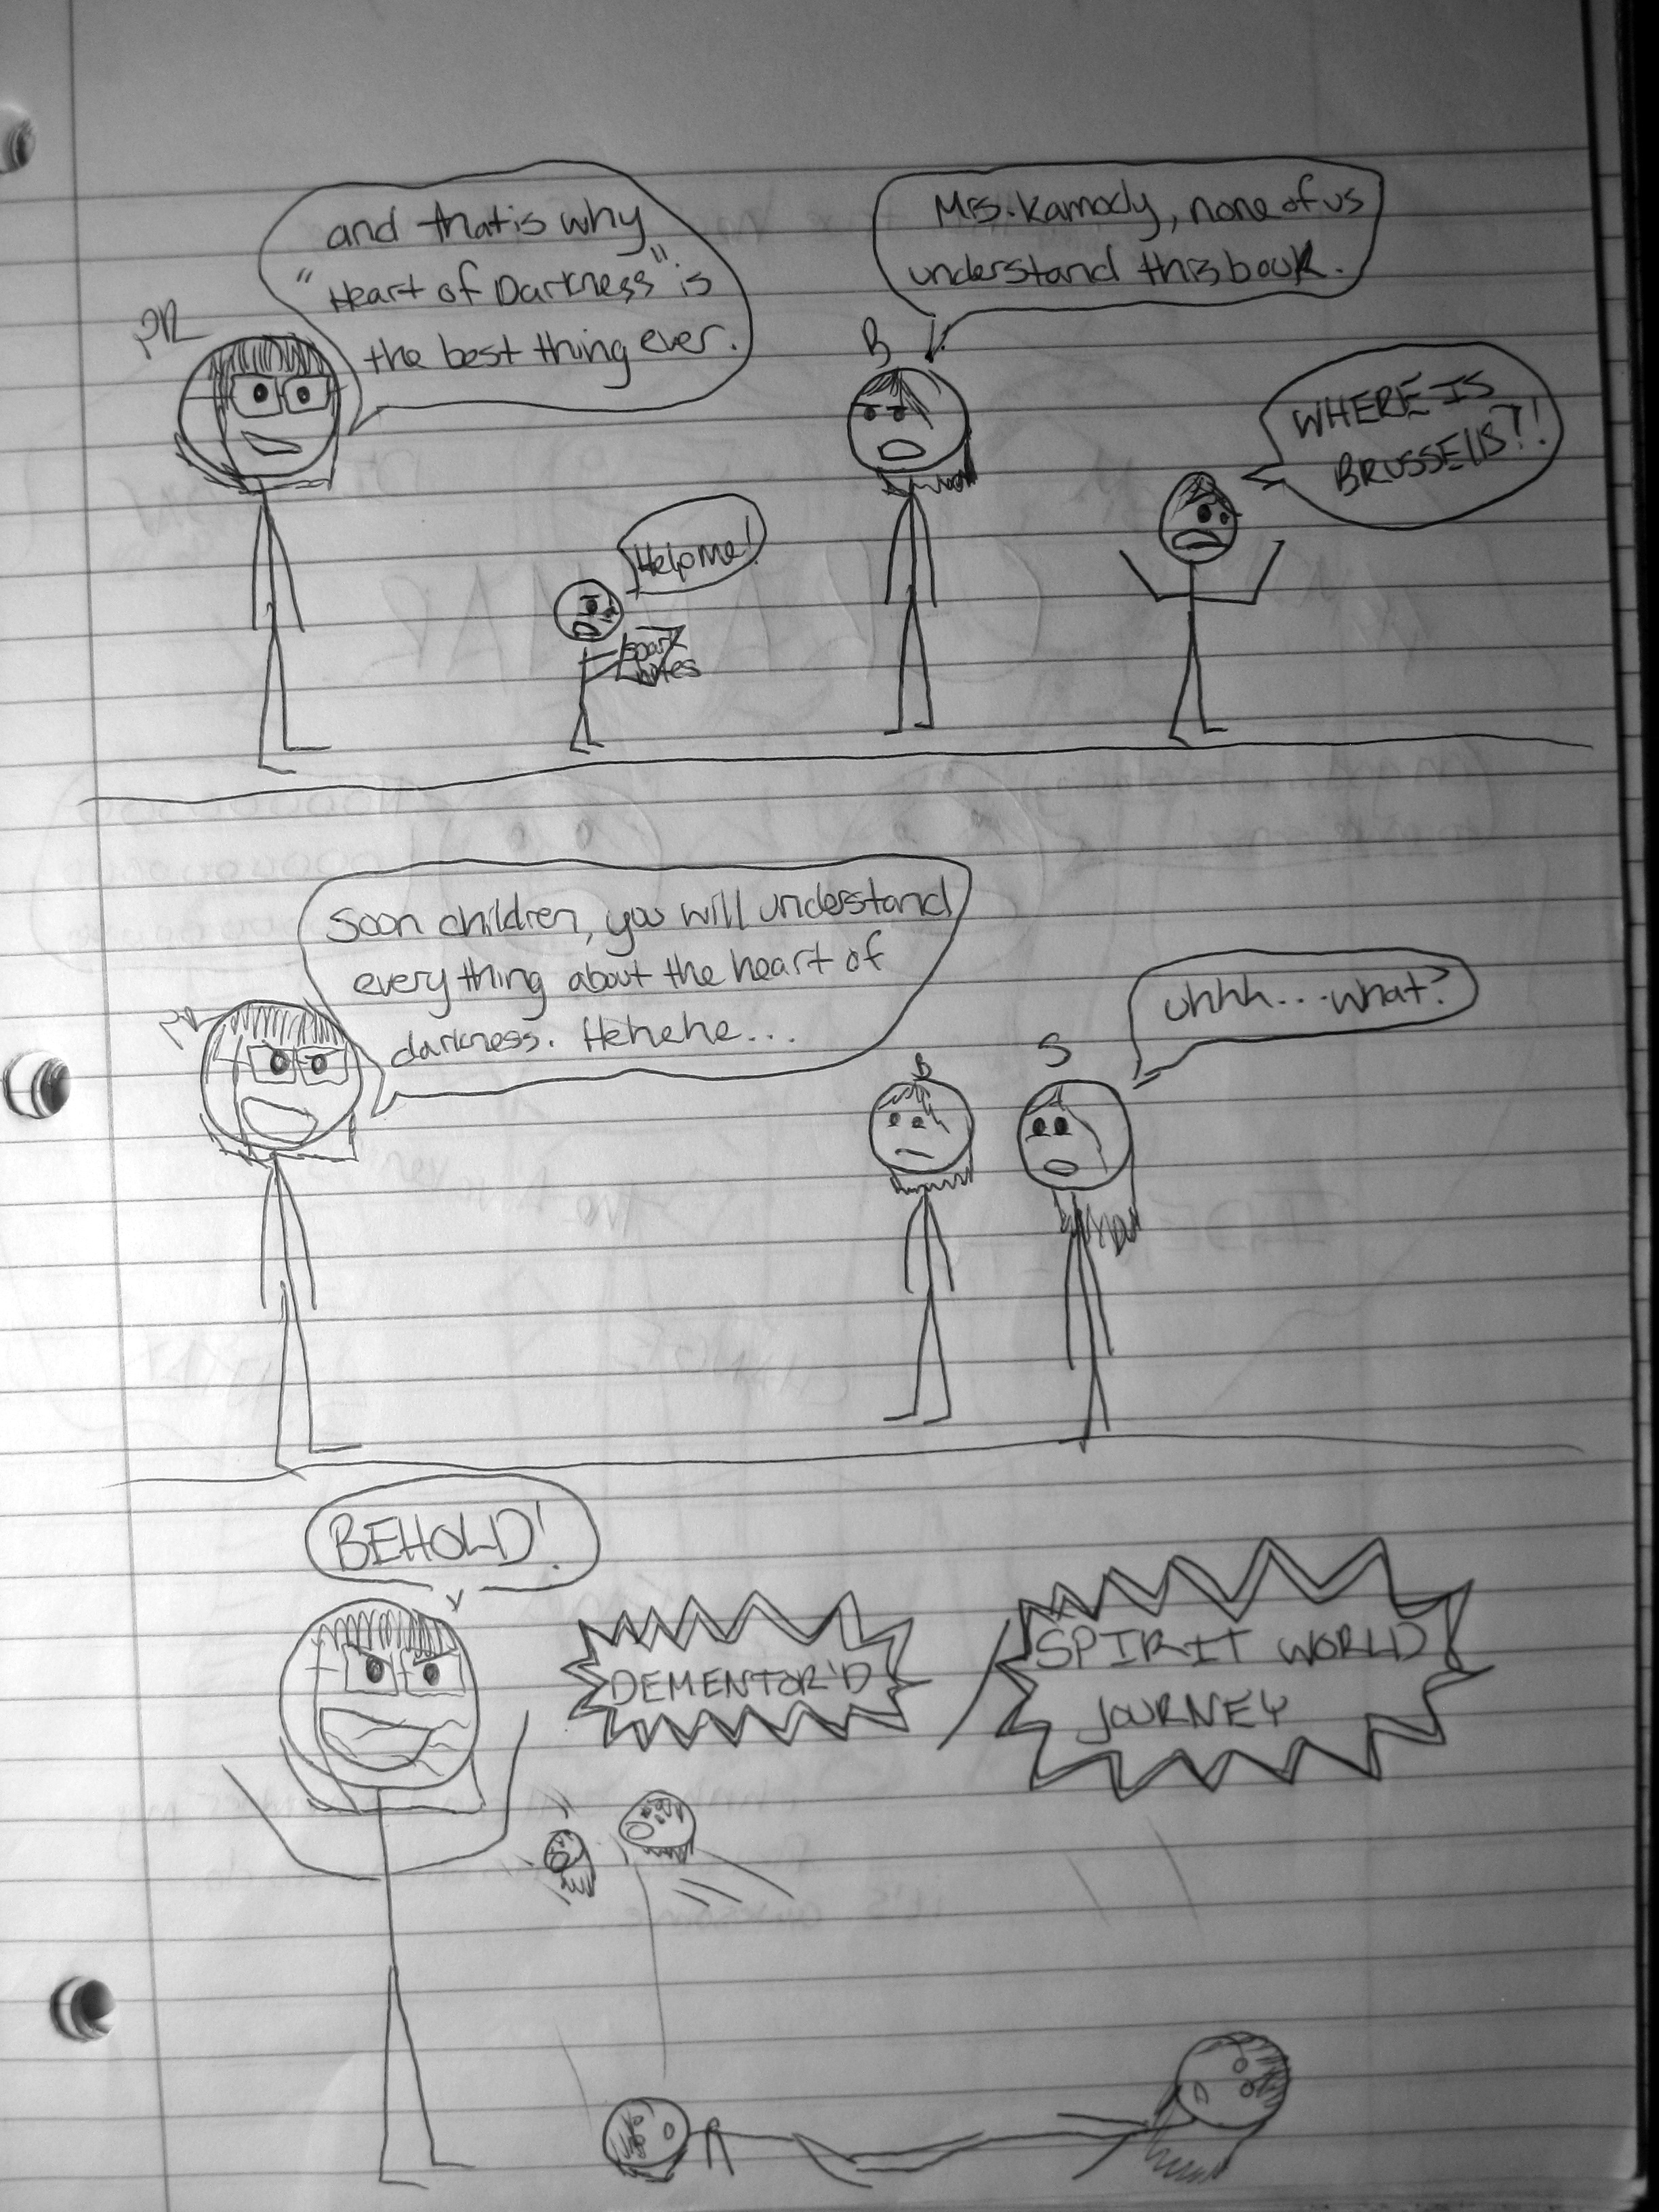 and that is why
"Heart of Darkness" is
the best thing ever.
Mrs. Kamody, none of us
understand this book.
B
WHERE IS
BRUSSELLS?!
Help me!
spark
notes
Soon children, you will understand
everything about the heart of
darkness. Hehehe...
uhhh...what?
B
S
BEHOLD!
DEMENTOR'D
SPIRIT WORLD
JOURNEY